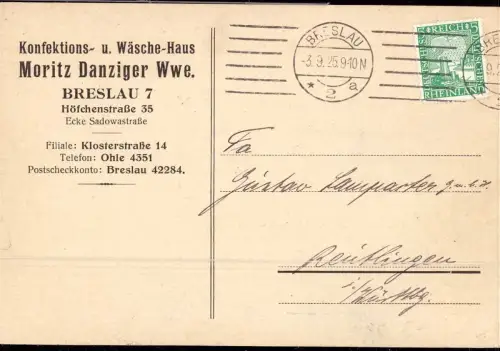 Konfektions- u. Wäsche-Haus
Moritz Danziger Wwe.
BRESLAU 7
Höfchenstraße 35
Ecke Sadowastraße
Filiale: Klosterstraße 14
Telefon: Ohle 4351
Postscheckkonto: Breslau 42284.
BRESLAU
-3.9.25.9-10N
* 2 a
DEUTSCHES REICH 5
RHEINLAND
Fa
Gustav Lamparter G.m.b.H.
Reutlingen
i/Württbg.